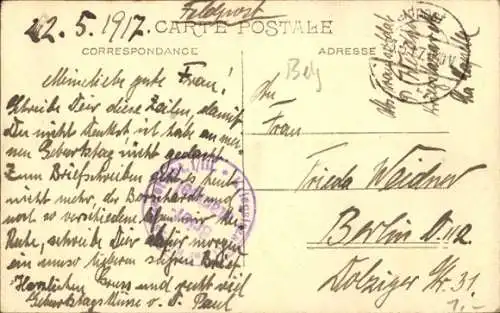 22.5.1917.
Feldpost
CARTE POSTALE
CORRESPONDANCE
ADRESSE
Meine liebe gute Frau!
Schreibe Dir diese Zeilen, damit
Du nicht denkst ich habe an mei-
nen Geburtstag nicht gedacht.
Zum Briefschreiben geht es heut
nicht mehr, der Bornhardt und
noch so verschiedene lassen mir keine
Ruhe, schreibe Dir dafür morgen
ein umso lieberen süßen Brief
Herzlichen Gruss und recht viel
Geburtstagsküsse v. D. Paul
Belg
An
Frau
Frieda Weidner
Berlin O.112
Dolziger Str. 31
1,-